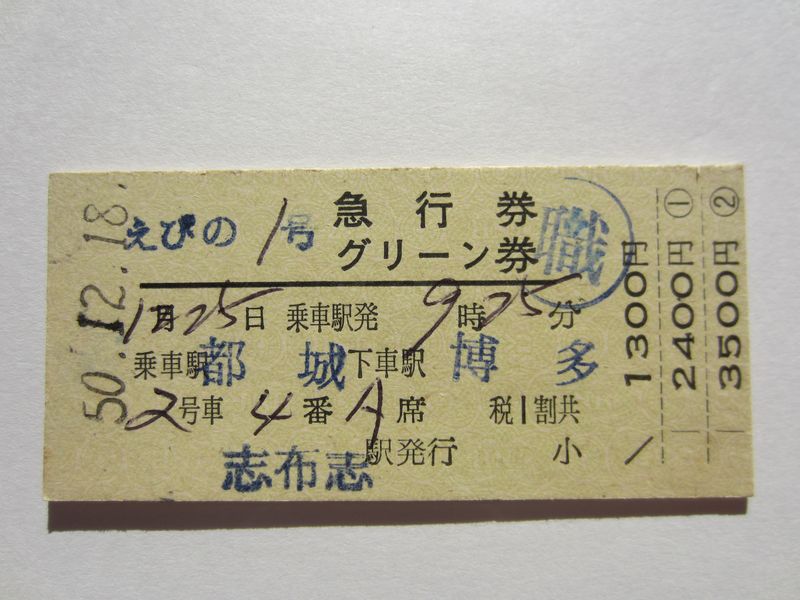 50.12.18.
えびの 1 号 急行券
グリーン券
職
12月25日 乗車駅発 9時25分
乗車駅 都城 下車駅 博多
2号車 4番A席 税1割共
志布志駅発行 小
1300円
2400円 ①
3500円 ②